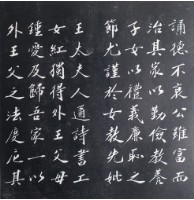 誦不衰公雖富而
治其家以勤儉教養
子女以禮義廉恥之
節尤謹於女教先妣
王太夫人通詩書工
女紅獨得外王父母
鍾愛及歸吾家一以
外王父之法度庀其